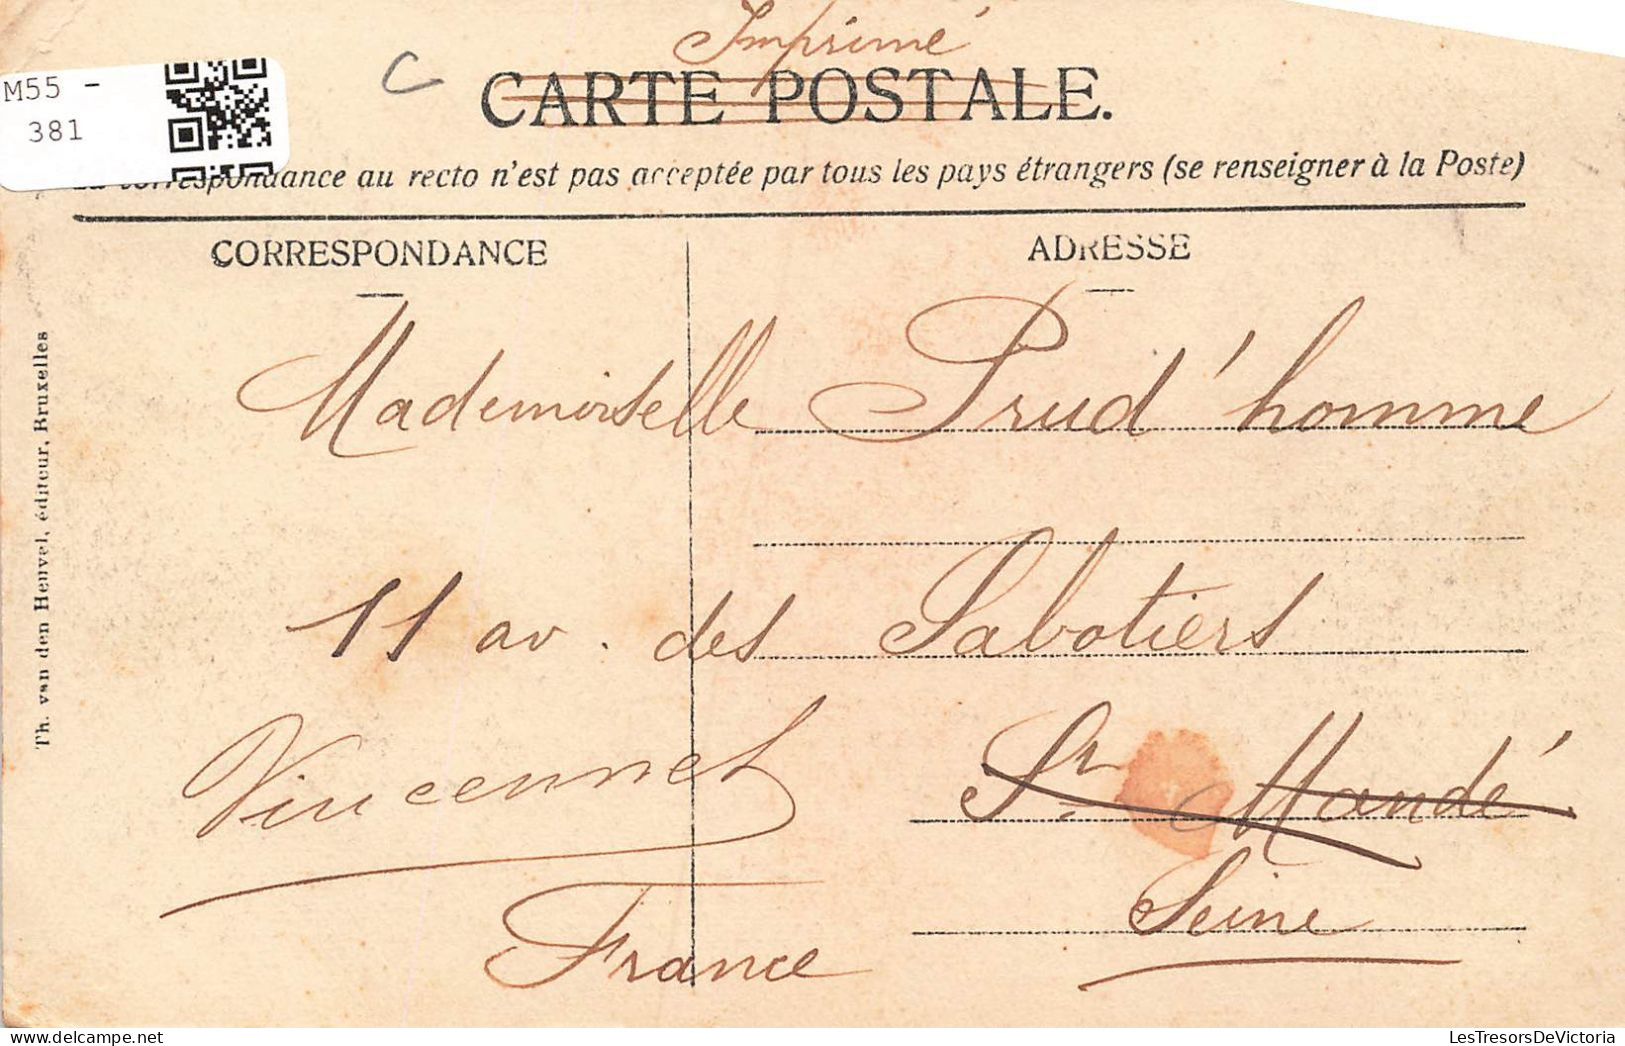 Imprimé
M55 -
381
C
CARTE POSTALE.
La correspondance au recto n'est pas acceptée par tous les pays étrangers (se renseigner à la Poste)
CORRESPONDANCE
ADRESSE
Th. van den Heuvel, éditeur, Bruxelles
Mademoiselle Prud'homme
11 av. des Sabotiers
Vincennes St Mandé
Seine
France
LesTresorsDeVictoria
https://www.delcampe.net